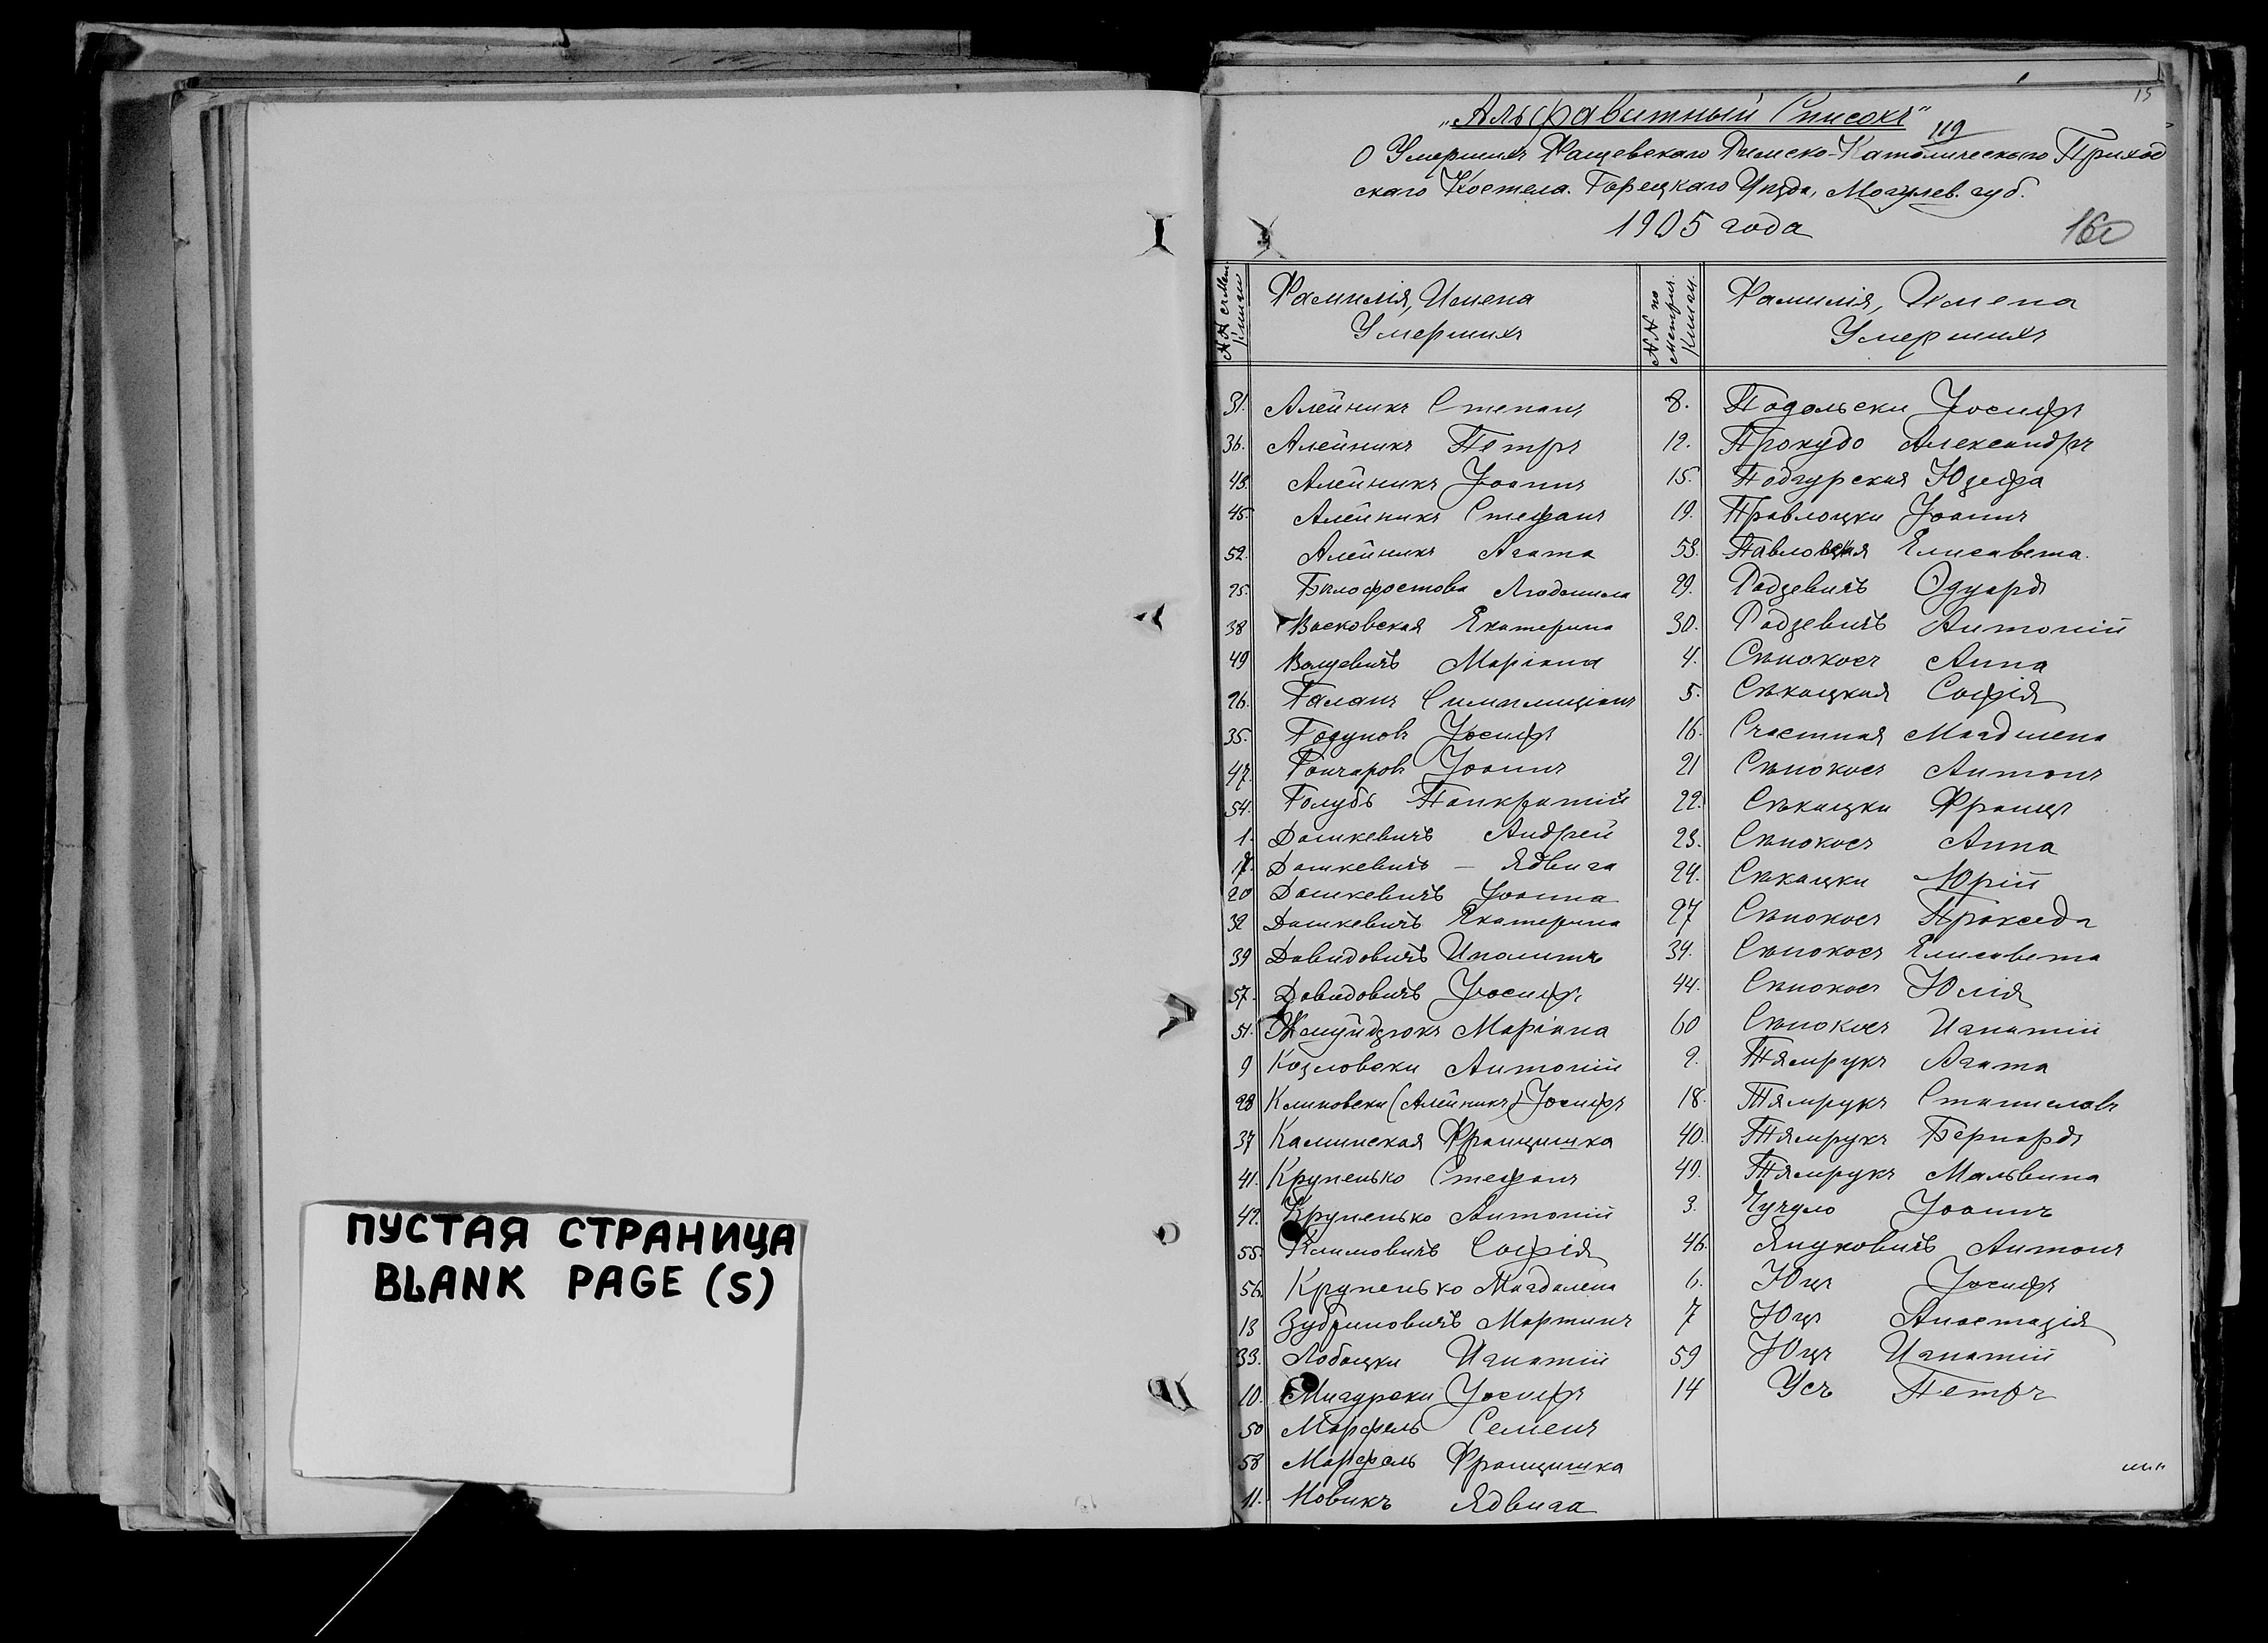 ПУСТАЯ СТРАНИЦА
BLANK PAGE (S)
15
„Альфавитный Списокъ"
119
О Умершихъ Фащевскаго Римско-Католическаго Приход
скаго Костела. Горецкаго Уѣзда, Могилев. губ.
1905 года
160
Фамилія, Имена
Умершихъ
№№ по
метрич.
Книги.
Фамилія, Имена
Умершихъ
31. Алейникъ Степанъ
36. Алейникъ Петръ
43. Алейникъ Іоаннъ
45. Алейникъ Стефанъ
52. Алейникъ Агата
25. Бѣлофостова Людвила
38 Васковская Екатерина
49 Волцевичъ Маріана
26. Галанъ Симплиціанъ
35. Годуновъ Іосифъ
47. Гончаровъ Іоаннъ
54. Голубъ Панкратій
1. Дашкевичъ Андрей
17. Дашкевичъ — Ядвига
20 Дашкевичъ Іоанна
32 Дашкевичъ Екатерина
39 Давидовичъ Иполитъ
57. Давидовичъ Іосифъ
51. Жмуйдзюкъ Маріана
9 Козловски Антоній
28 Климовски (Алейникъ) Іосифъ
37 Каминская Францишка
41. Крупенько Стефанъ
42. Крупенько Антоній
55. Климовичъ Софія
56. Крупенько Магдалена
13 Зубриновичъ Мартинъ
33. Лобацки Игнатій
10. Мигурски Іосифъ
50 Марфель Семенъ
58 Марфель Францишка
11. Новикъ Ядвига
8. Подольски Іосифъ
12. Прокудо Александръ
15. Подгурская Юзефа
19. Правлоцки Іоаннъ
53. Павловская Елисавета.
29. Радзевичъ Эдуардъ
30. Радзевичъ Антоній
4. Сѣнокосъ Анна
5. Сѣкацкая Софія
16. Счастная Магдалена
21 Сѣнокосъ Антонъ
22. Сѣкацки Францъ
23. Сѣнокосъ Анна
24. Сѣкацки Юрій
27 Сѣнокосъ Пракседа
34. Сѣнокосъ Елисавета
44. Сѣнокосъ Юлія
60 Сѣнокосъ Игнатій
2. Тямрукъ Агата
18. Тямрукъ Станиславъ
40. Тямрукъ Бернардъ
49. Тямрукъ Мальвина
3. Чучуло Іоаннъ
46. Януковичъ Антонъ
6. Юцъ Іосифъ
7 Юцъ Анастазія
59 Юцъ Игнатій
14 Усъ Петръ